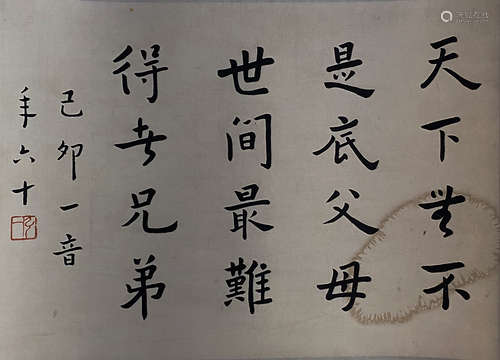 天下無不
是底父母
世間最難
得者兄弟
己卯一音
年六十